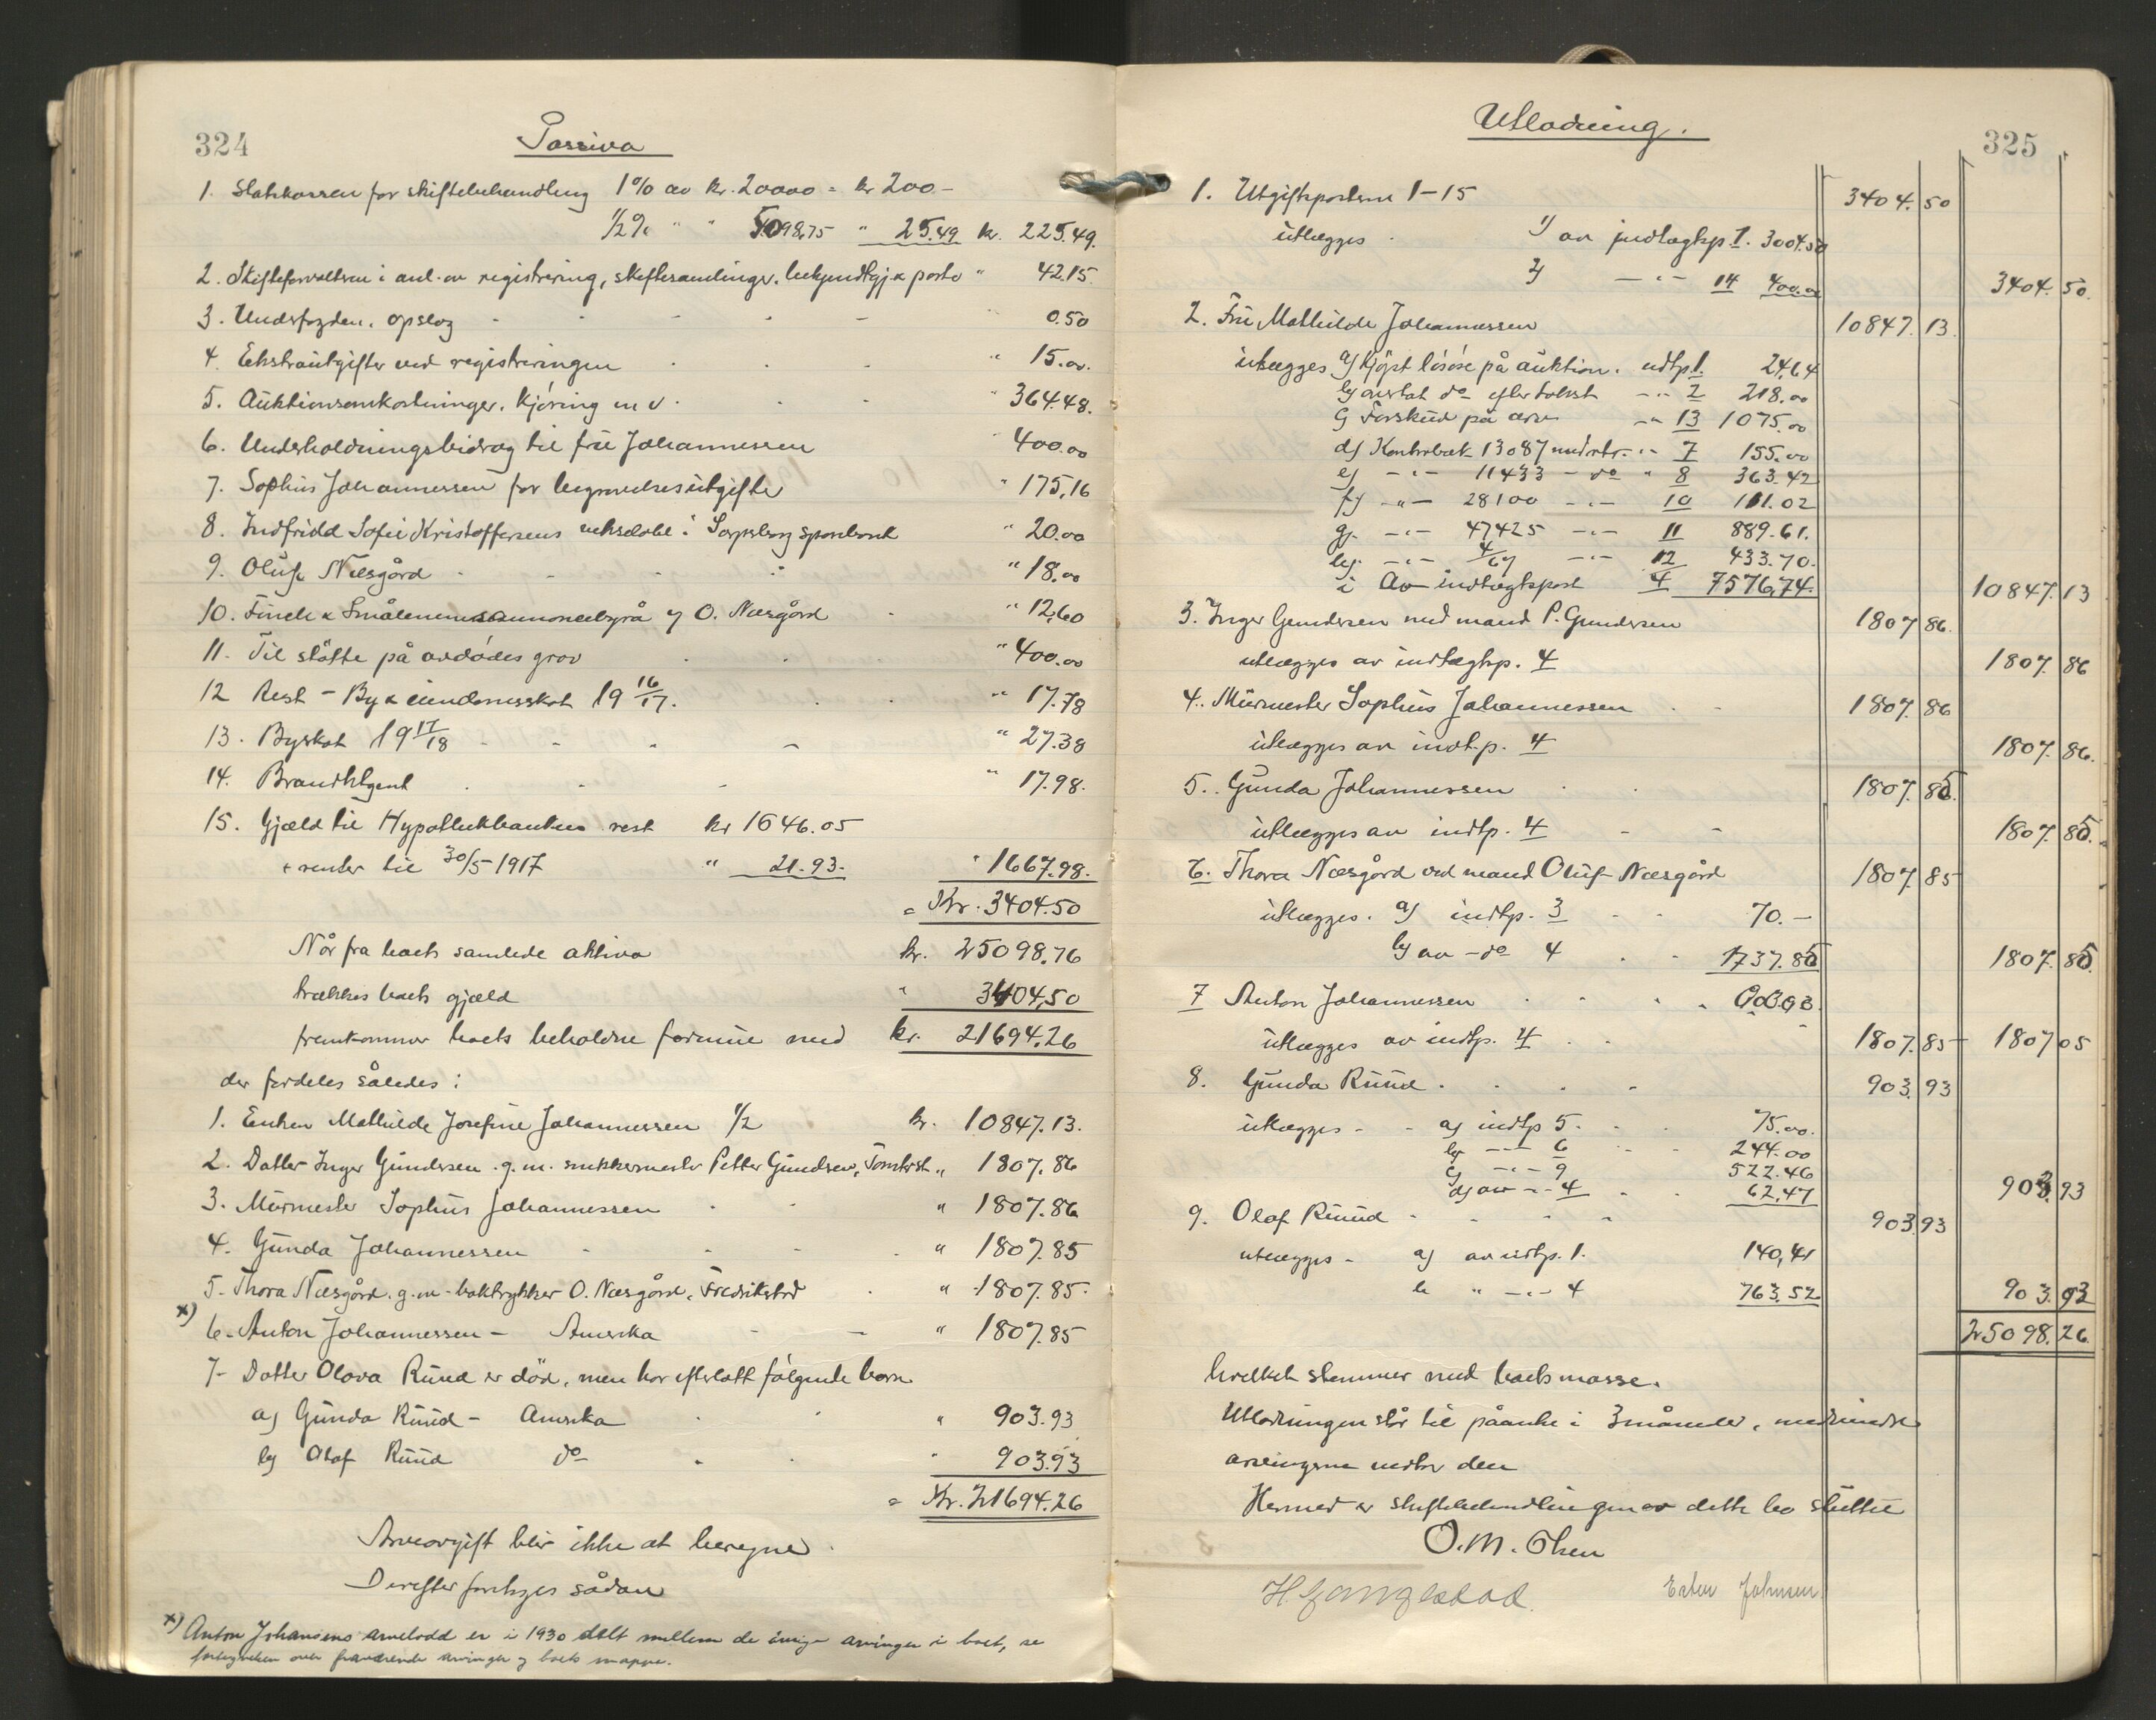 324
Passiva
1. Statskassen for skiftebehandling 1% av kr. 20000 = kr 200.-
1/2% " " 5098,75 " 25.49 kr. 225.49.
2. Skifteforvalteren i anl. av registrering, skiftesamlinger, bekjendtgj & porto " 42.15
3. Underfogden. opslag - - - - " 0.50
4. Ekstrautgifter ved registreringen " 15.00.
5. Auktionsomkostninger. Kjöring m v. " 364.48.
6. Underholdningsbidrag til frü Johannessen " 400.00
7. Sophus Johannessen for begravelsesutgifter " 175,16
8. Indfridd Sofie Kristoffersens veksdel i Sarpsborg sparebank " 20.00
9. Oluf Næsgård - - - " 18.00
10. Finde & Smålenenes annoncebyrå v/ O. Næsgård " 12,60
11. Til stötte på avdödes grav " 400.00
12 Rest - By & eiendomsskat 19 16/17. " 17.78
13. Byskat 19 17/18 - - - " 27.38
14. Brandktgent " 17.98.
15. Gjæld til Hypothekbanken rest kr 1646.05
+ renter til 30/5-1917 " 21.93. " 1667.98.
= Kr. 3404.50
Når fra boets samlede aktiva kr. 25098,76
trækkes boets gjæld " 3404,50
fremkommer boets beholdne formue med kr. 21694,26
der fordeles således:
1. Enken Mathilde Josefine Johannessen 1/2 kr. 10847.13.
2. Datter Inger Gundersen. g. m. snekkermester Petter Gundsen, Tomtest. " 1807.86
3. Murmester Sophus Johannessen " 1807.86
4. Gunda Johannessen " 1807.85
5. Thora Næsgård. g. m. boktrykker O. Næsgård, Fredrikstad " 1807.85.
x) 6. Anton Johannessen - Amerika - - " 1807.85
7- Datter Olava Ruud er död, men har efterlatt fölgende barn
a) Gunda Ruud - Amerika " 903.93
b) Olaf Ruud do " 903.93
= Kr. 21694.26
Arveavgift blir ikke at beregne.
Derefter foretages sådan
x) Anton Johansens arvelodd er i 1930 delt mellem de övrige arvinger i boet, se
fortegnelsen over fraværende arvinger og boets mappe.
325
Utlodning.
1. Utgiftsposterne 1-15 3404.50
utlægges 1/ av indtægtsp. 1. 3004.50
2/ -"- 14 400.00 3404.50.
2. Frü Mathilde Johannessen 10847.13
utlægges a/ Kjöpt lösöre på auktion. indtp 1. 24,64
b/ overtat do efter takst -"- 2 218.00
c/ Forskud på arv -"- 13 1075.00
d/ Kontrabok 13087 med rtr. -"- 7 155.00
e/ -"- 11433 - do " 8 363.42
f/ -"- 28100 -"- 10 111.02
g/. -"- 47425 -"- 11 889.61.
h/. -"- 4/69 -"- 12 433.70.
i Av indtægtspost 4 7576,74. 10847.13
3. Inger Gundersen med mand P. Gundersen 1807 86.
utlægges av indtægtsp. 4 1807.86
4. Murmester Sophus Johannessen 1807.86
utlægges av indt.p. 4 1807.86.
5. Gunda Johannessen 1807.85.
utlægges av indtp. 4 - - 1807.85.
6. Thora Næsgård ved mand Oluf Næsgård 1807.85
utlægges. a/ indtp. 3 70.-
b/ av - do 4 1737.85 1807.85.
7 Anton Johannessen
utlægges av indtp. 4 1807.85 1807 85
8. Gunda Ruud 903.93
utlægges - a/ indtp 5. 75.00.
b/ -"- 6 244.00
c/ -"- 9 522.46
d/ av -"- 4 62,47 903.93
9. Olaf Ruud 903.93
utlægges - a/ av indtp. 1. 140,41
b " -"- 4 763,52 903.93
25098.26
hvilket stemmer med boets masse.
Utlodningen står til påanke i 3 måneder, medmindre
arvingerne vedtar den
Hermed er skiftebehandlingen av dette bo sluttet
O. M. Olsen
Johnsen